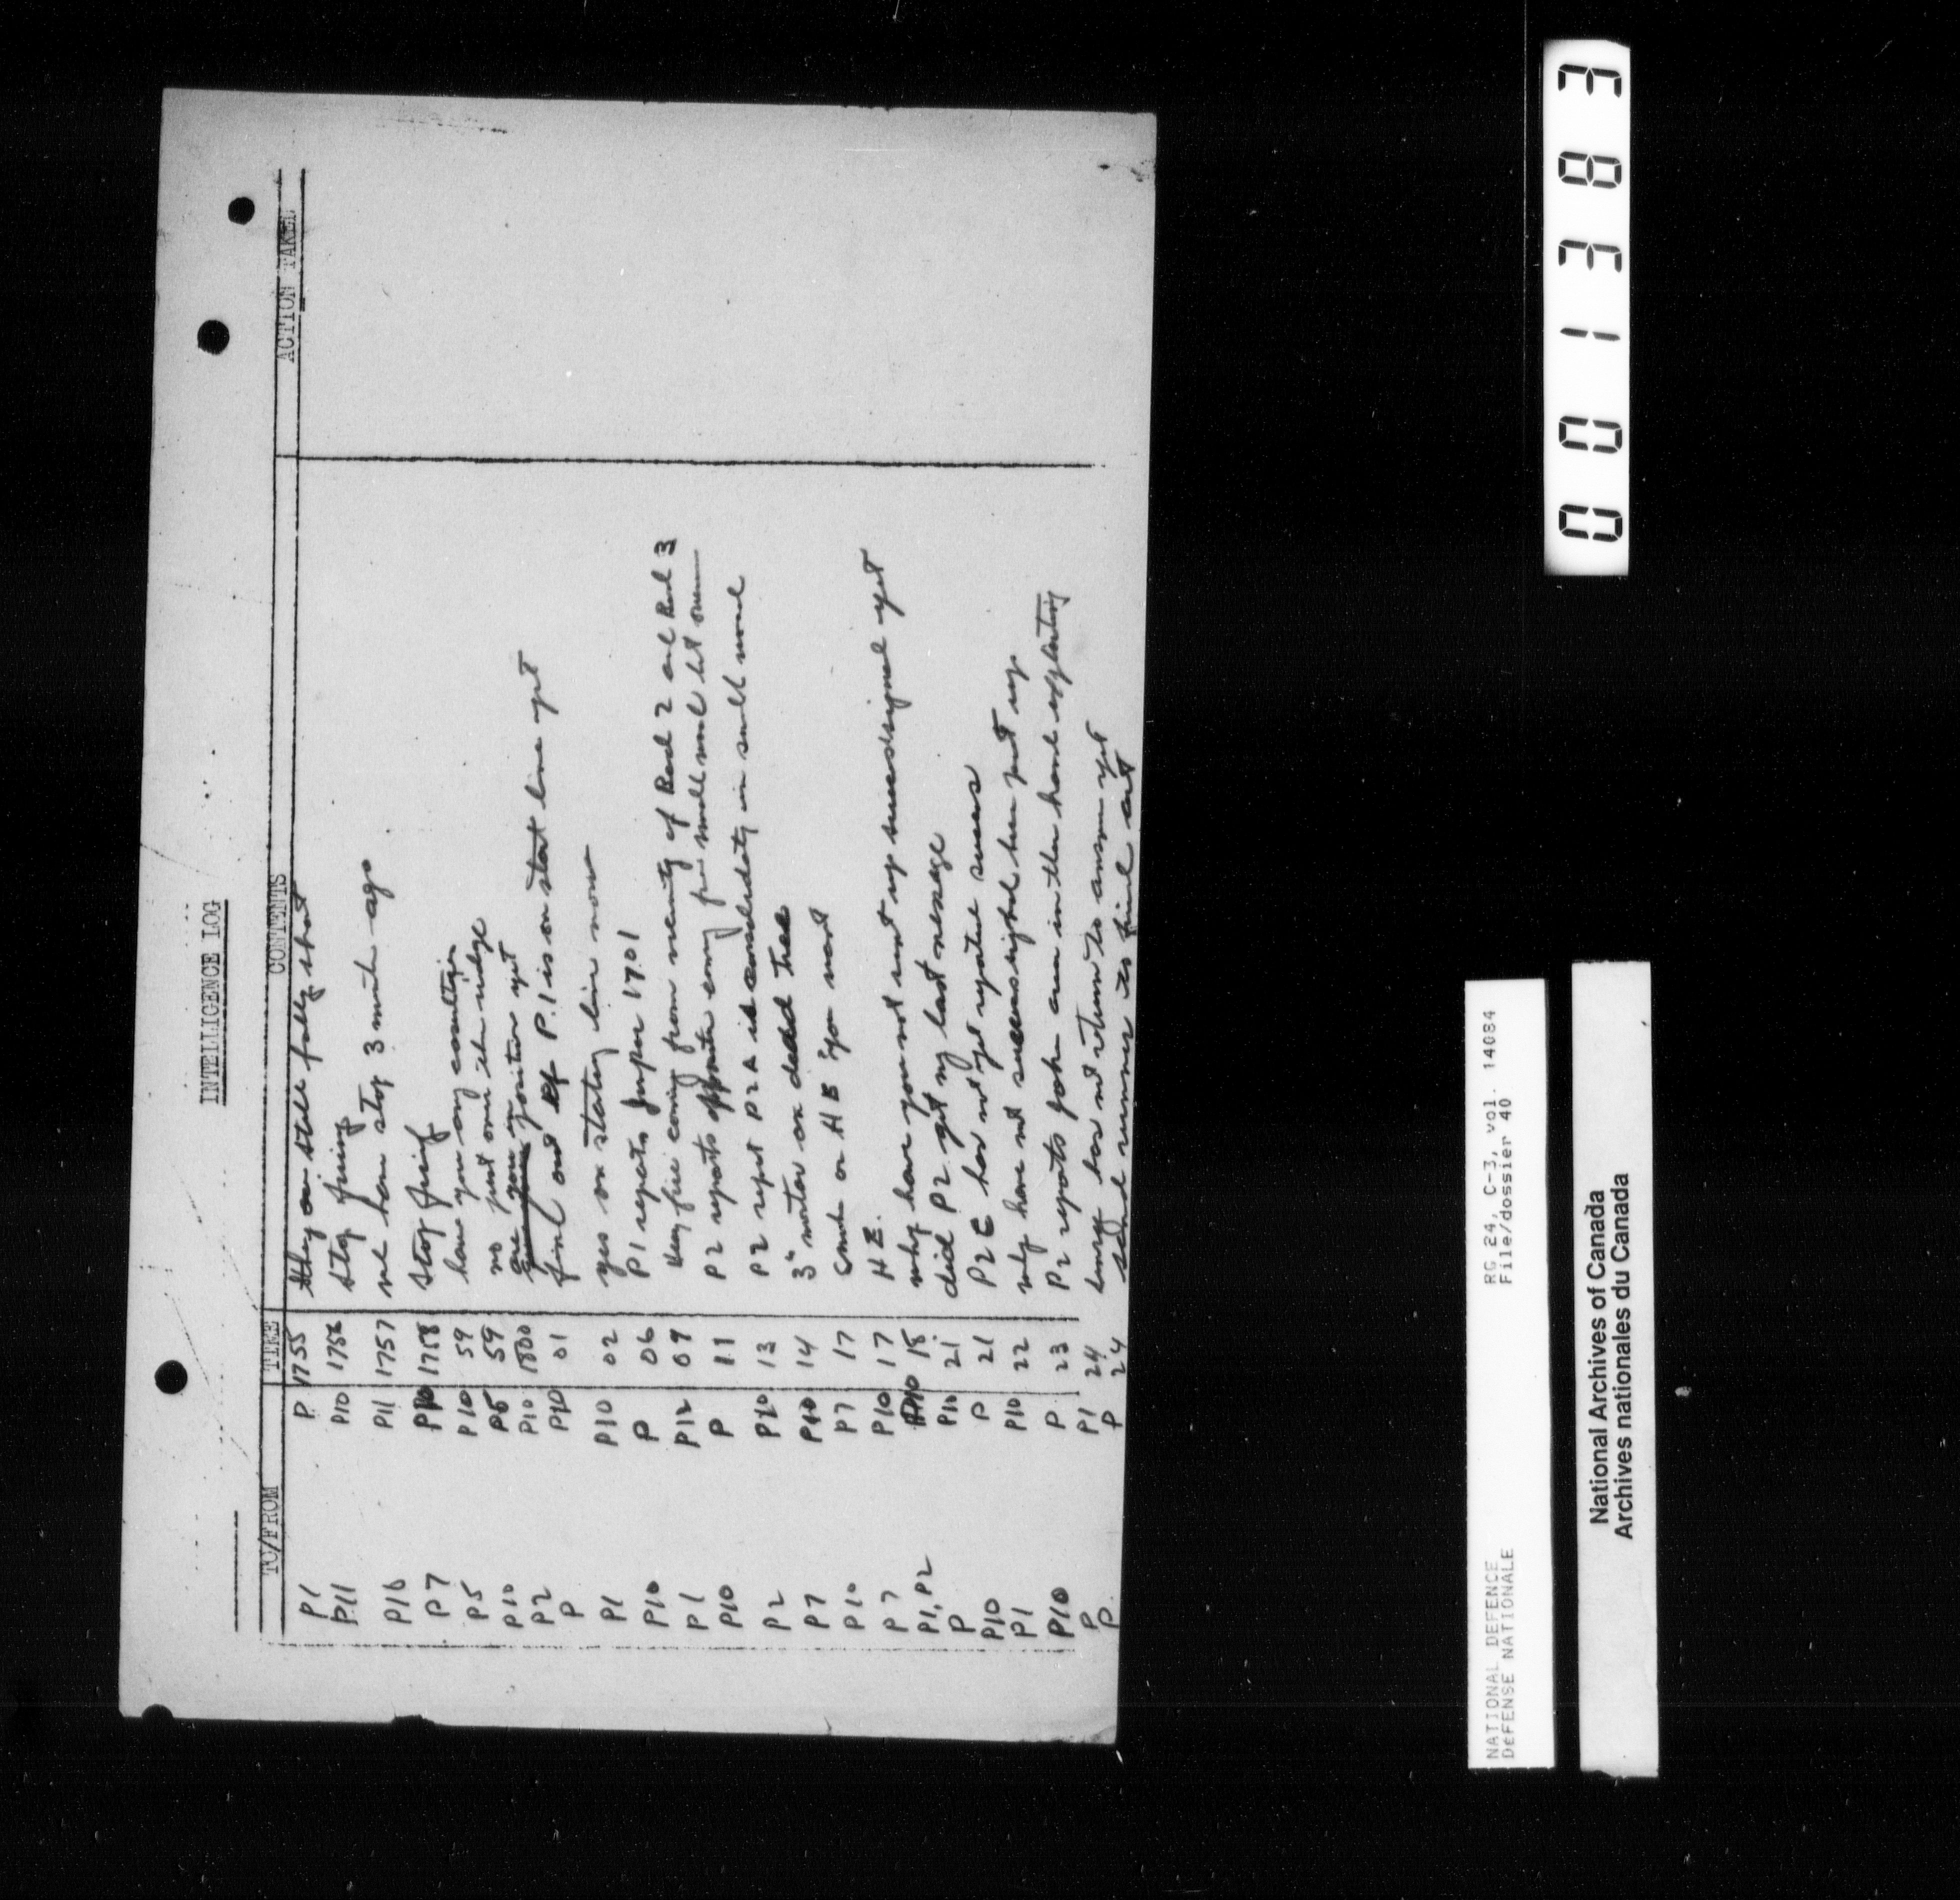 INTELLIGENCE LOG
TO/FROM TIME CONTENTS ACTION TAKEN
P1 P 1755 they are still falling short
P11 P10 1756 stop firing
P16 P11 1757 we have stop 3 minute ago
P7 P10 1758 stop firing
P5 P10 59 have you any casualties
P10 P5 59 no just over the ridge
P2 P10 1800 are you position yet
P P10 01 find out if P.1 is on start line yet
P1 P10 02 yes on starting line now
P10 P 06 P1 reports Juniper 17.01
P1 P12 09 Hvy fire coming from vicinity of Road 2 and Road 3
P10 P 11 P2 reports opposite enemy fire small wood hit over
P2 P10 13 P2 report P2A is consolidating in small wood
P7 P10 14 3" mortar on dead tree
P10 P7 17 Smoke or HE you want
P7 P10 17 HE.
P1, P2 P10 18 why have you not sent up success signal yet
P P10 21 did P2 get my last message
P10 P 21 P2 C has not yet reported success
P1 P10 22 why have not success signal been put up
P10 P 23 P2 reports John in other hand exploiting
P P1 24 has not return to answer yet
P P 24 send runner to find out
001383
NATIONAL DEFENCE RG 24, C-3, vol. 14084
DEFENSE NATIONALE File/dossier 40
National Archives of Canada
Archives nationales du Canada